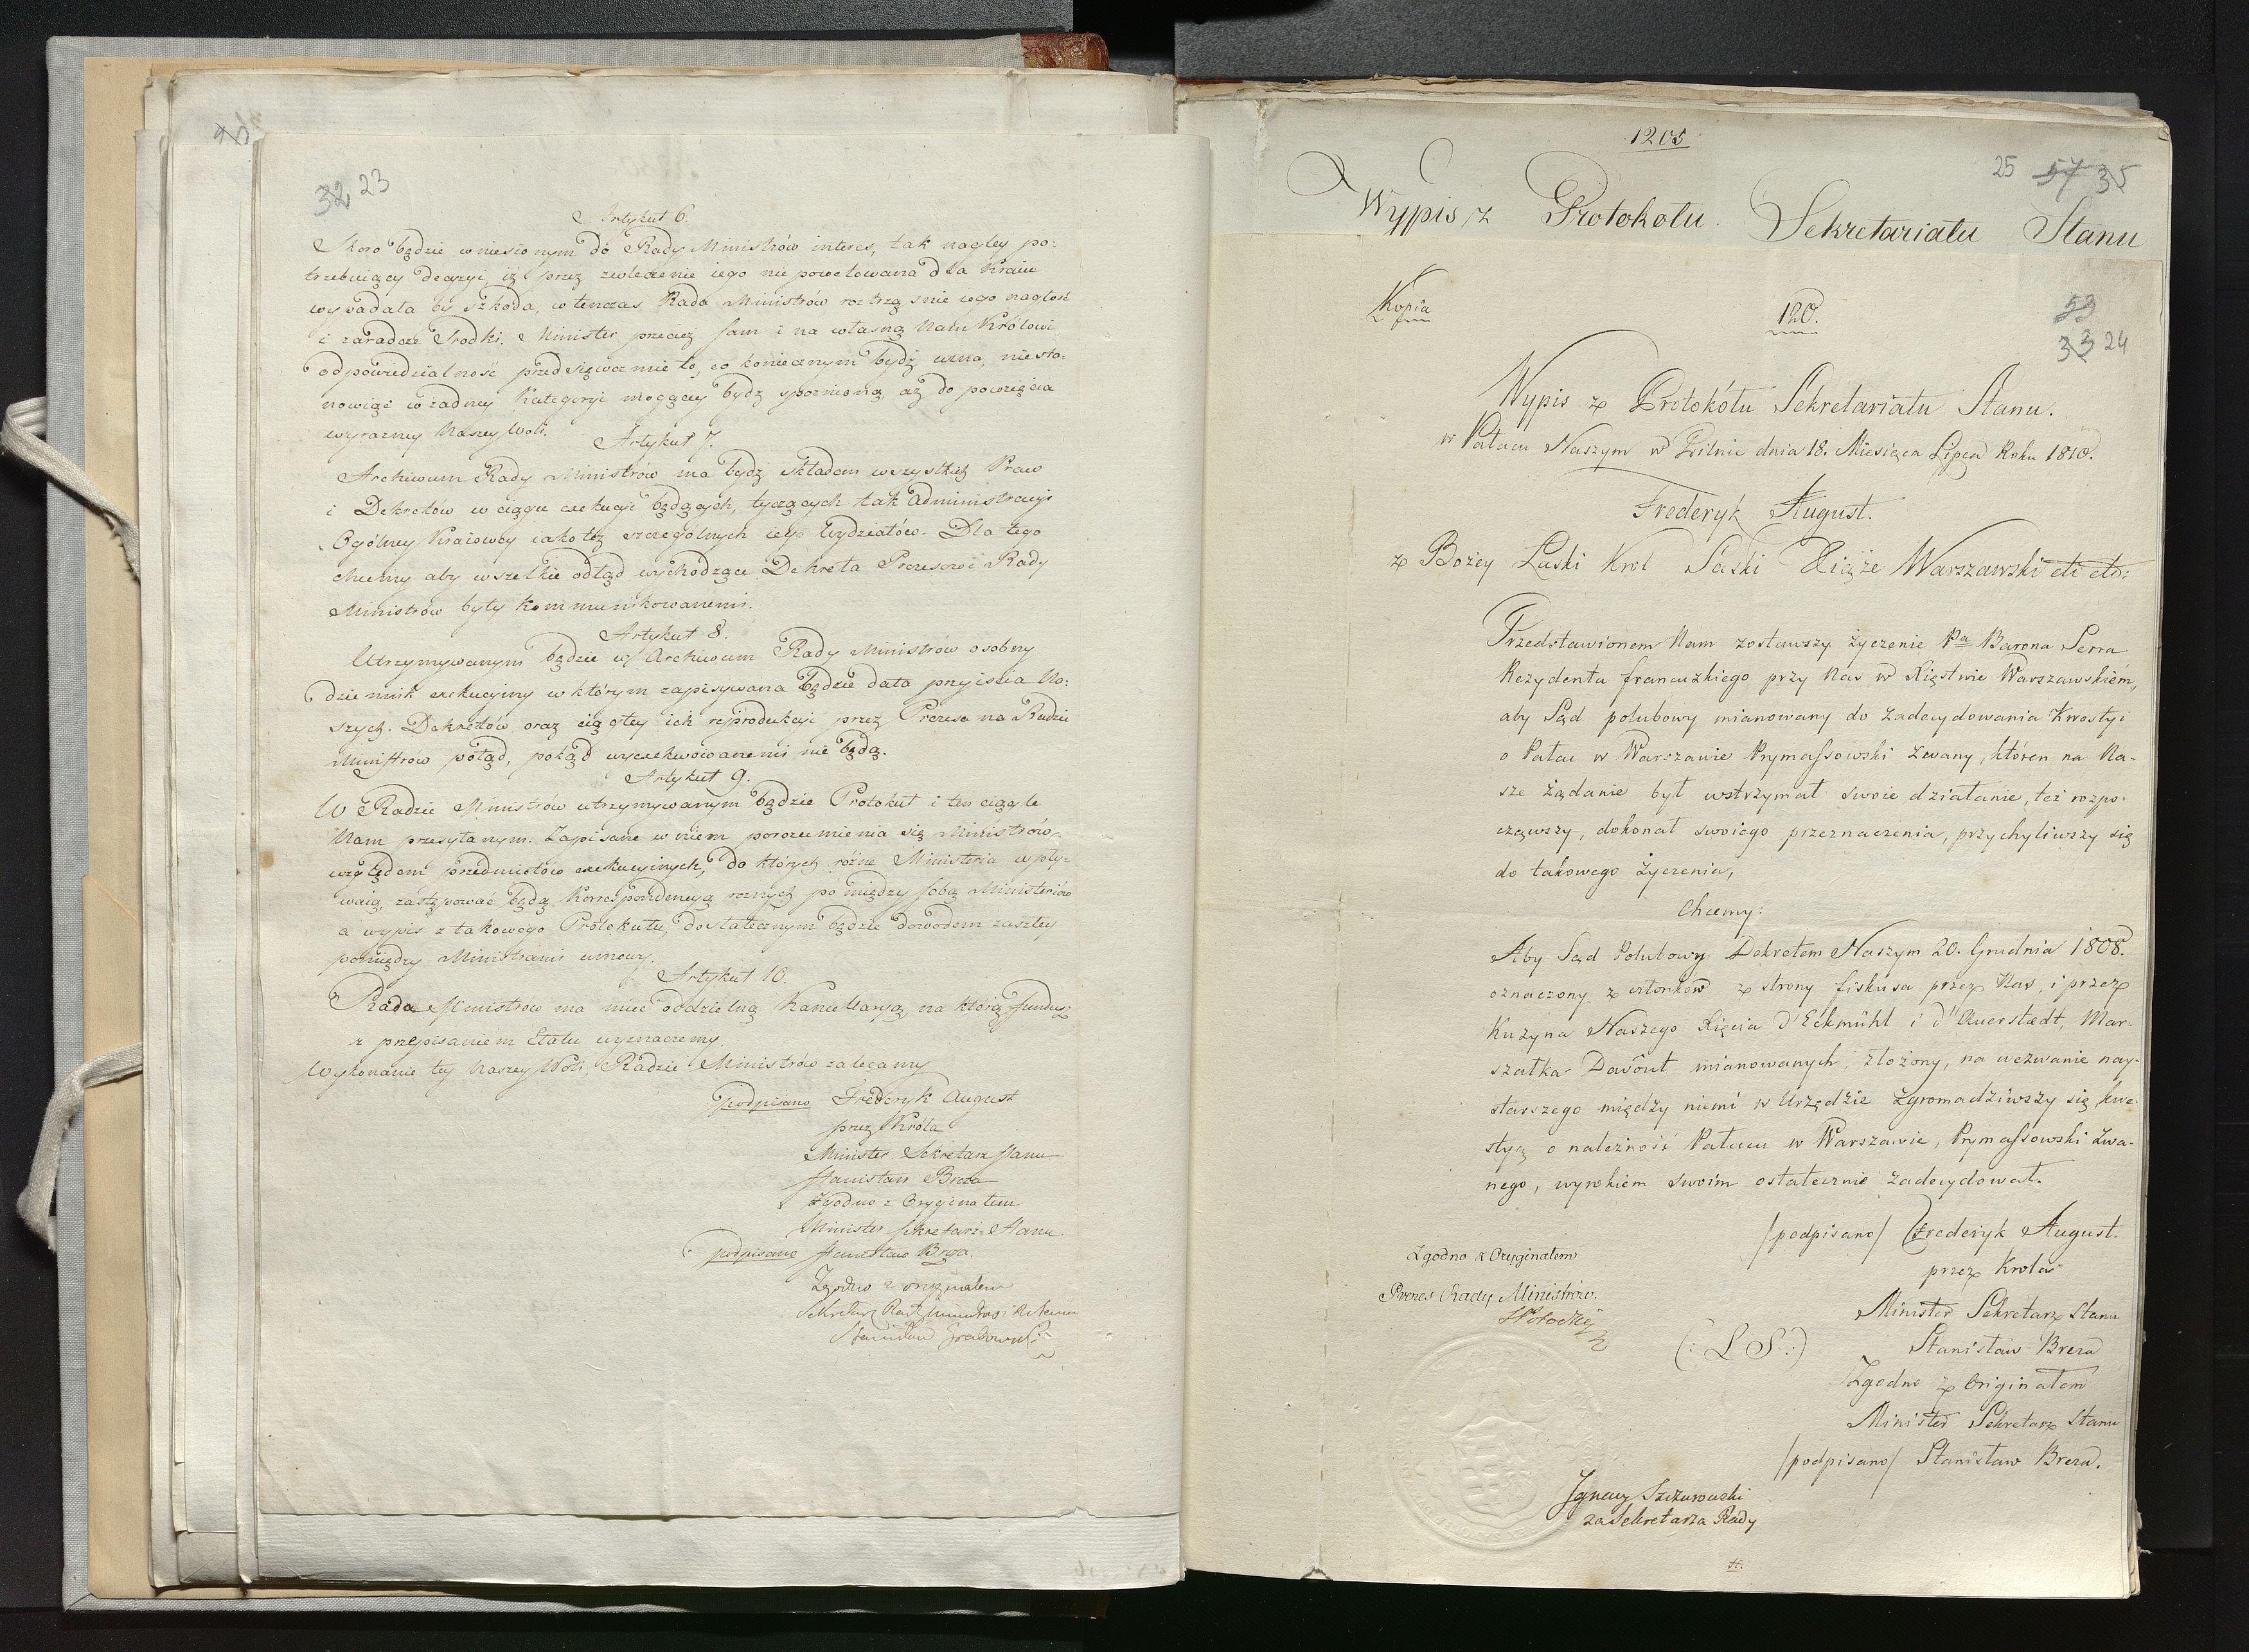 32 23
Artykuł 6.
Skoro będzie wniesionym do Rady Ministrów interes, tak nagłey po:
trzebuiący decyzyi, iż przez zwleczenie iego nie powetowana dla Kraiu
wypadała by szkoda, w tenczas Rada Ministrów roztrząśnie iego nagłość
i zaradcze środki. Minister przecież sam i na własną Nam Królowi
odpowiedzialność przedsięwezmie to, co koniecznym bydź uzna, niesta:
nowiąc w żadney Kategoryi mogącey bydz spoznioną, aż do powzięcia
wyrazney Naszey Woli.
Artykuł 7.
Archiwum Rady Ministrów ma bydz składem wszystkich Praw
i Dekretów w ciągu exekucyi będących, tyczących tak Administracyi
Ogólney Kraiowey iako też szczególnych iey Wydziałów. Dla tego
chcemy aby wszelkie odtąd wychodzące Dekreta Prezesowi Rady
Ministrów były kommunikowanemi.
Artykuł 8.
Utrzymywanym będzie w Archiwum Rady Ministrów osobny
dziennik exekucyiny w którym zapisywana będzie data przyiścia Na:
szych Dekretów oraz ciągłey ich reprodukcyi przez Prezesa na Radzie
Ministrów potąd, pokąd wyexekwowanemi nie będą.
Artykuł 9.
W Radzie Ministrów utrzymywanym będzie Protokuł i ten ciągle
Nam przesyłanym. Zapisane w niem porozumienia się Ministrów
względem przedmiotów exekucyinych, do których różne Ministeria wpły:
waią, zastępować będą Korrespondencyą rożnych pomiędzy sobą Ministeriów
a wypis z takowego Protokułu, dostatecznym będzie dowodem zaszłey
pomiędzy Ministrami umowy.
Artykuł 10.
Rada Ministrów ma mieć oddzielną Kancellaryą, na którą fundusz
z przepisaniem Etatu wyznaczemy.
Wykonanie tey Naszey Woli, Radzie Ministrów zalecamy
podpisano Frederyk August
przez Króla
Minister Sekretarz Stanu
Stanisław Breza
Zgodno z Oryginałem
Minister Sekretarz Stanu
podpisano Stanisław Breza.
Zgodno z oryginałem
Sekretarz Rady Ministrów
Stanisław Grabowski
1205
25 57 35
Wypis z Protokołu Sekretariatu Stanu
Kopia
120.
53
33 24
Wypis z Protokółu Sekretariatu Stanu.
w Pałacu Naszym w Pilnic dnia 18. Miesiąca Lipca Roku 1810.
Frederyk August.
z Bożey Łaski Krol Saski Xiąże Warszawski etc etc:
Przedstawionem Nam zostawszy życzenie Pa Barona Serra
Rezydenta francuzkiego przy Nas w Xięstwie Warszawskiém,
aby Sąd polubowy mianowany do zadecydowania Kwestyi
o Pałac w Warszawie Prymassowski zwany, któren na Na-
sze żądanie był wstrzymał swoie działanie, też rozpo-
cząwszy, dokonał swoiego przeznaczenia, przychyliwszy się
do takowego życzenia,
Chcemy:
Aby Sąd Polubowy Dekretem Naszym 20. Grudnia 1808.
oznaczony z członków z strony fiskusa przez Nas, i przez
Kuzyna Naszego Xięcia d'Eckmühl i d'Auerstædt, Mar-
szałka Davout mianowanych, złożony, na wezwanie nay-
starszego między niemi w Urzędzie zgromadziwszy się, kwe-
styą o należność Pałacu w Warszawie, Prymassowski zwa-
nego, wyrokiem swoim ostatecznie zadecydował.
/podpisano/ Frederyk August.
przez Krola
Minister Sekretarz Stanu
Stanisław Breza
(: L S :)
Zgodno z Originałem
Minister Sekretarz Stanu
/podpisano/ Stanisław Breza.
Zgodno z Oryginałem
Prezes Rady Ministrów.
Potocki
Ignacy Szczurowski
za Sekretarza Rady